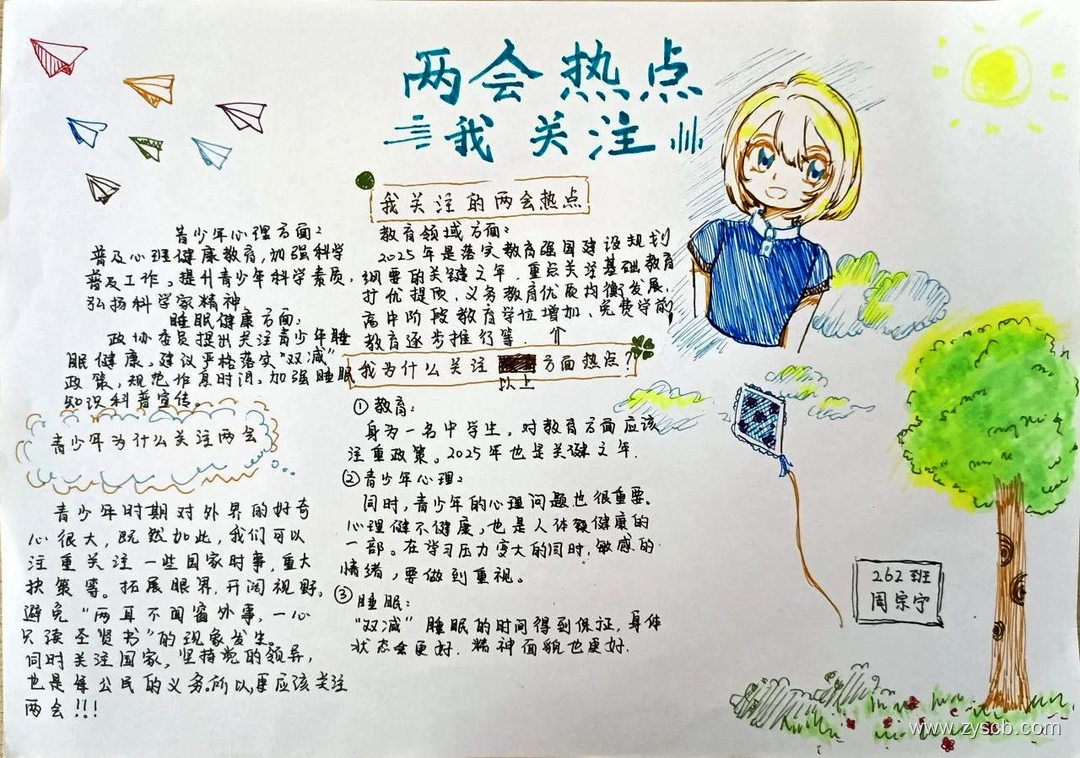 两会热点
我关注
我关注的两会热点
教育领域方面：
2025年是落实教育强国建设规划
纲要的关键之年，重点关注基础教育
扩优提质，义务教育优质均衡发展，
高中阶段教育学位增加、免费学前
教育逐步推行等。
青少年心理方面：
普及心理健康教育，加强科学
普及工作。提升青少年科学素质，
弘扬科学家精神。
睡眠健康方面：
政协委员提出关注青少年睡
眠健康。建议严格落实“双减”
政策，规范作息时间。加强睡眠
知识科普宣传。
我为什么关注方面热点？
以上
①教育：
身为一名中学生，对教育方面应该
注重政策。2025年也是关键之年。
②青少年心理：
同时，青少年的心理问题也很重要。
心理健不健康，也是人体健康的
一部。在学习压力变大的同时，敏感的
情绪，要做到重视。
③睡眠：
“双减”睡眠的时间得到保证，身体
状态会更好，精神面貌也更好。
青少年为什么关注两会
青少年时期对外界的好奇
心很大，既然如此，我们可以
注重关注一些国家时事，重大
抉策等。拓展眼界，开阔视野，
避免“两耳不闻窗外事，一心
只读圣贤书”的现象发生。
同时关注国家，坚持党的领导，
也是每公民的义务。所以，更应该关注
两会！！！
262班
周宗宁
www.zyscb.com